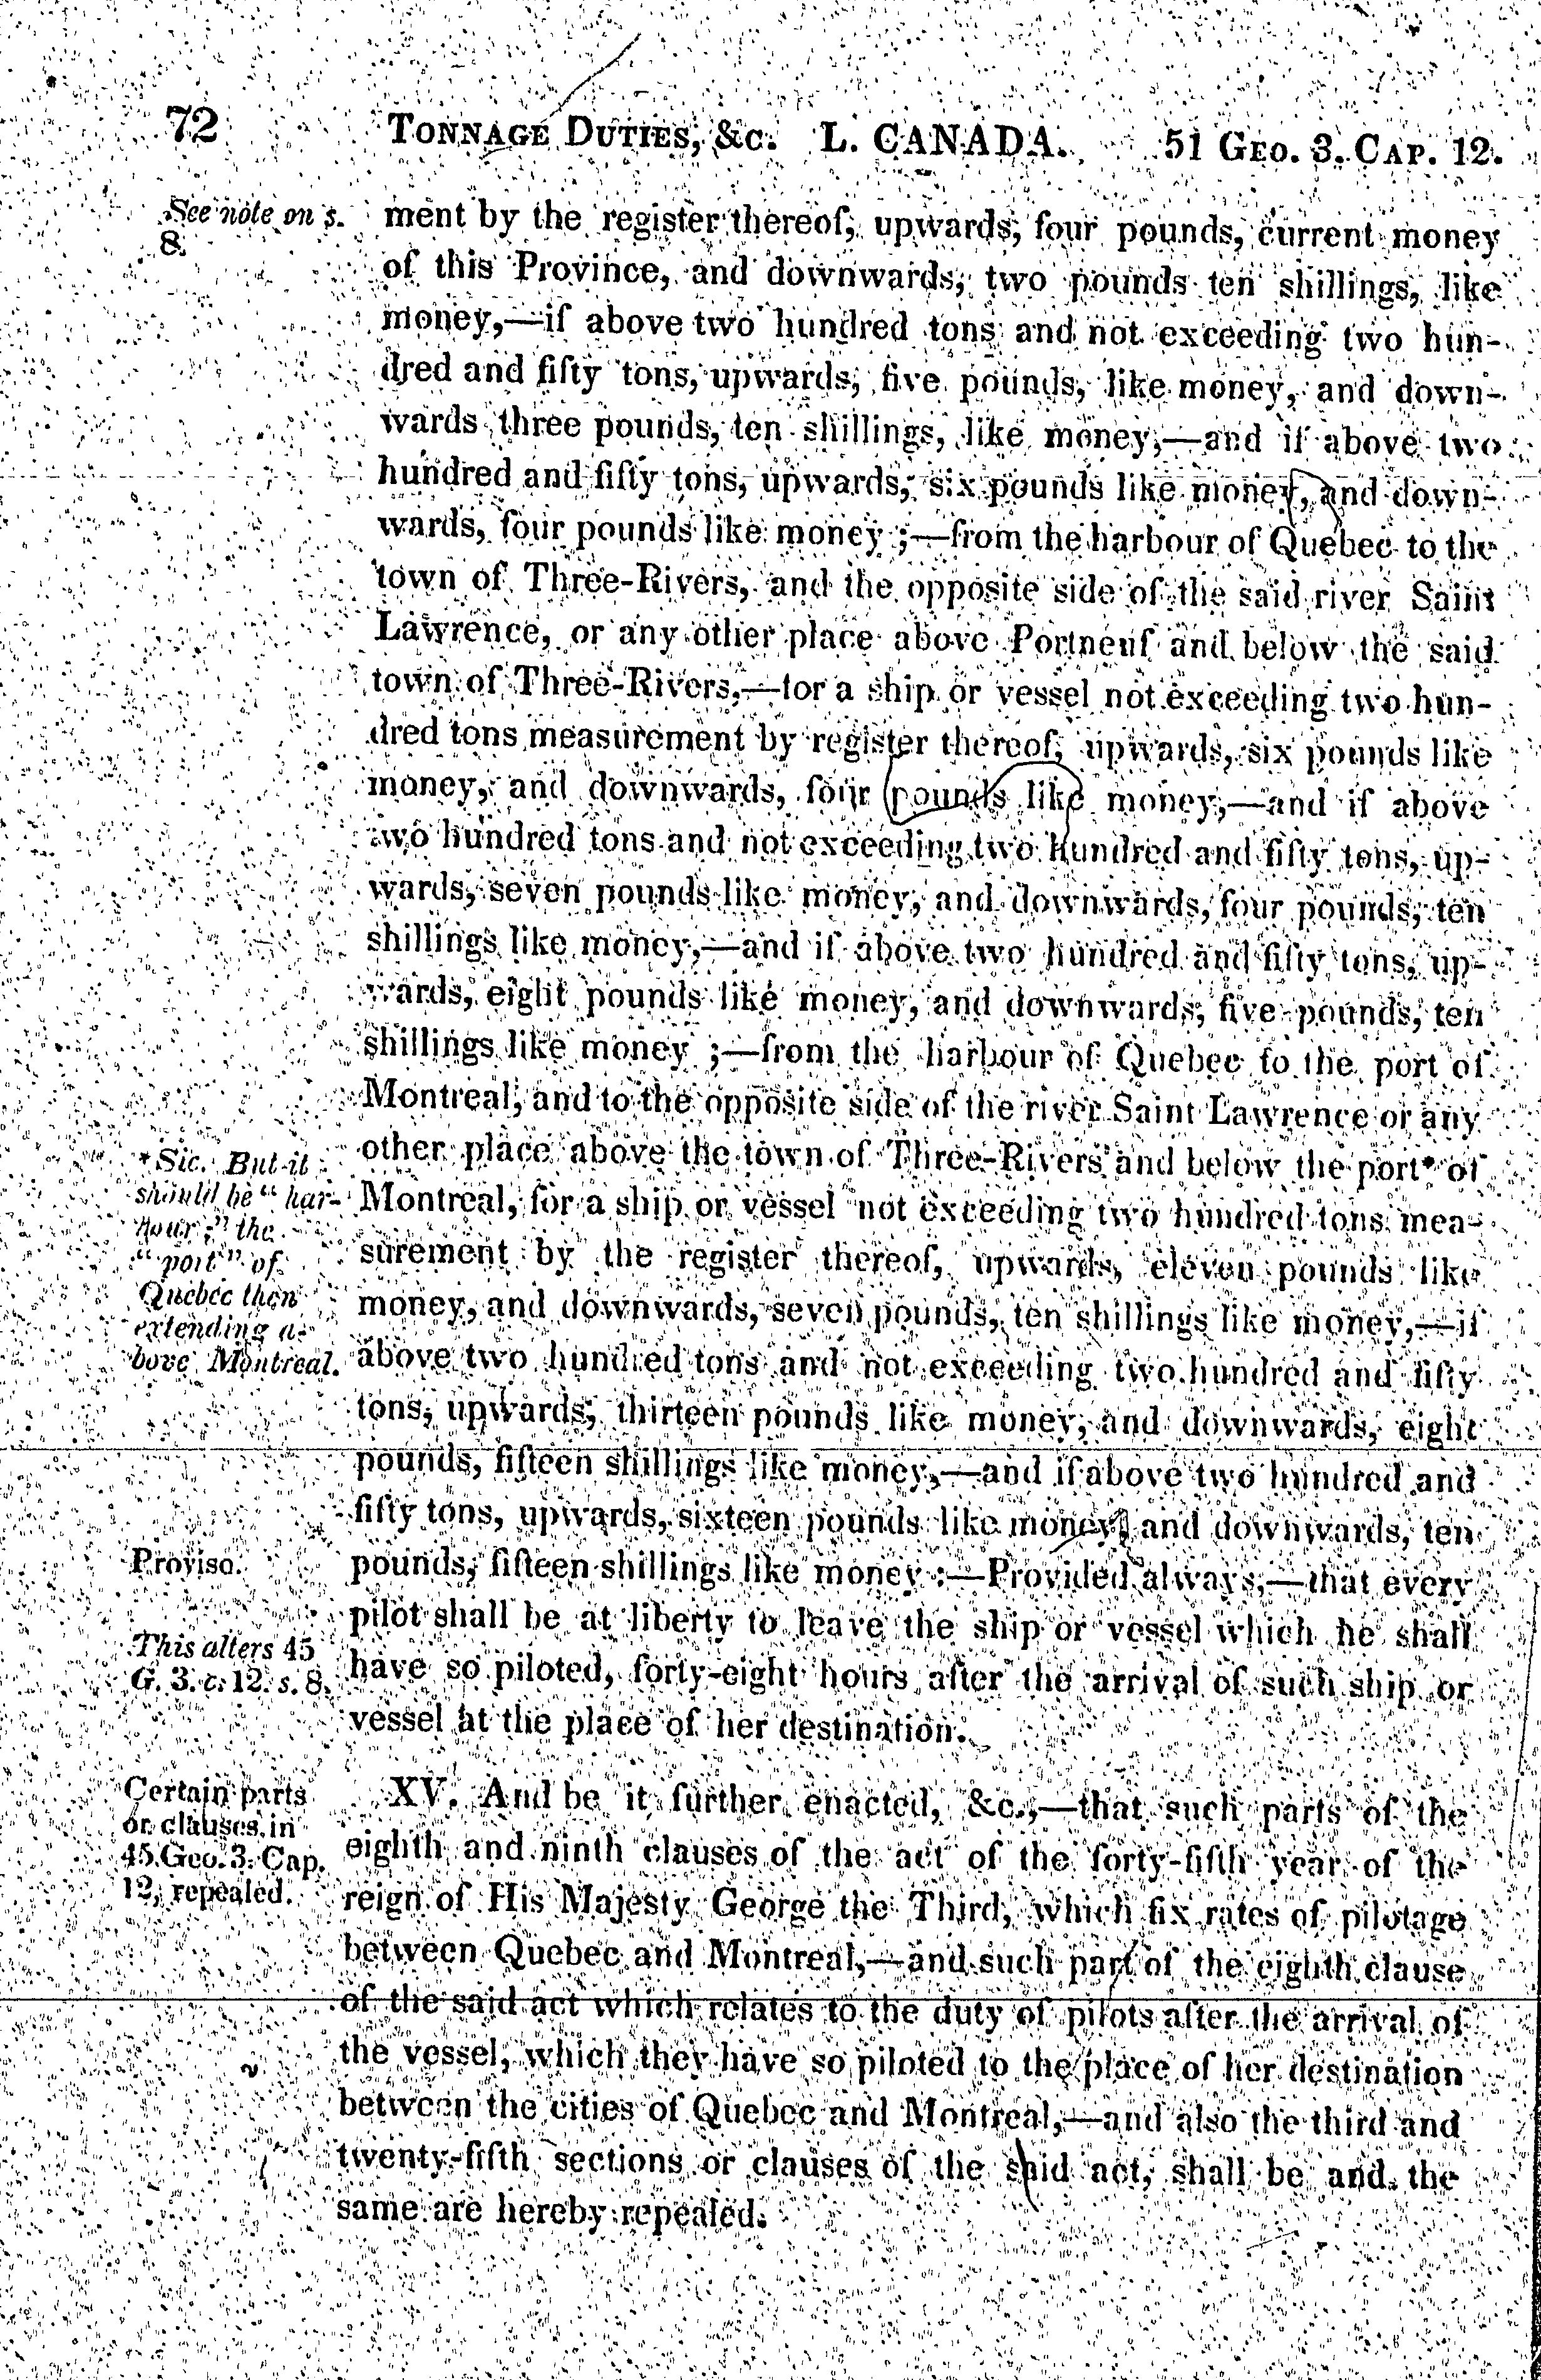 72 TONNAGE DUTIES, &c. L. CANADA. 51 GEO. 3. CAP. 12.
See note on s.
8.
ment by the register thereof, upwards, four pounds, current money
of this Province, and downwards, two pounds ten shillings, like
money,—if above two hundred tons and not exceeding two hun-
dred and fifty tons, upwards, five pounds, like money, and down-
wards three pounds, ten shillings, like money,—and if above two
hundred and fifty tons, upwards, six pounds like money, and down-
wards, four pounds like money ;—from the harbour of Quebec to the
town of Three-Rivers, and the opposite side of the said river Saint
Lawrence, or any other place above Portneuf and below the said
town of Three-Rivers,—for a ship or vessel not exceeding two hun-
dred tons measurement by register thereof, upwards, six pounds like
money, and downwards, four pounds like money,—and if above
two hundred tons and not exceeding two hundred and fifty tons, up-
wards, seven pounds like money, and downwards, four pounds, ten
shillings like money,—and if above two hundred and fifty tons, up-
wards, eight pounds like money, and downwards, five pounds, ten
shillings like money ;—from the harbour of Quebec to the port of
Montreal, and to the opposite side of the river Saint Lawrence or any
other place above the town of Three-Rivers and below the port* of
Montreal, for a ship or vessel not exceeding two hundred tons mea-
surement by the register thereof, upwards, eleven pounds like
money, and downwards, seven pounds, ten shillings like money,—if
above two hundred tons and not exceeding two hundred and fifty
tons, upwards, thirteen pounds like money, and downwards, eight
pounds, fifteen shillings like money,—and if above two hundred and
fifty tons, upwards, sixteen pounds like money, and downwards, ten
pounds, fifteen shillings like money :—Provided always,—that every
pilot shall be at liberty to leave the ship or vessel which he shall
have so piloted, forty-eight hours after the arrival of such ship or
vessel at the place of her destination.
*Sic. But it
should be "har-
bour;" the
"port" of
Quebec then
extending a-
bove Montreal.
Proviso.
This alters 45
G. 3. c. 12. s. 8.
Certain parts
or clauses in
45. Geo. 3. Cap.
12, repealed.
XV. And be it further enacted, &c.,—that such parts of the
eighth and ninth clauses of the act of the forty-fifth year of the
reign of His Majesty George the Third, which fix rates of pilotage
between Quebec and Montreal,—and such part of the eighth clause
of the said act which relates to the duty of pilots after the arrival of
the vessel, which they have so piloted to the place of her destination
between the cities of Quebec and Montreal,—and also the third and
twenty-fifth sections or clauses of the said act, shall be and the
same are hereby repealed.